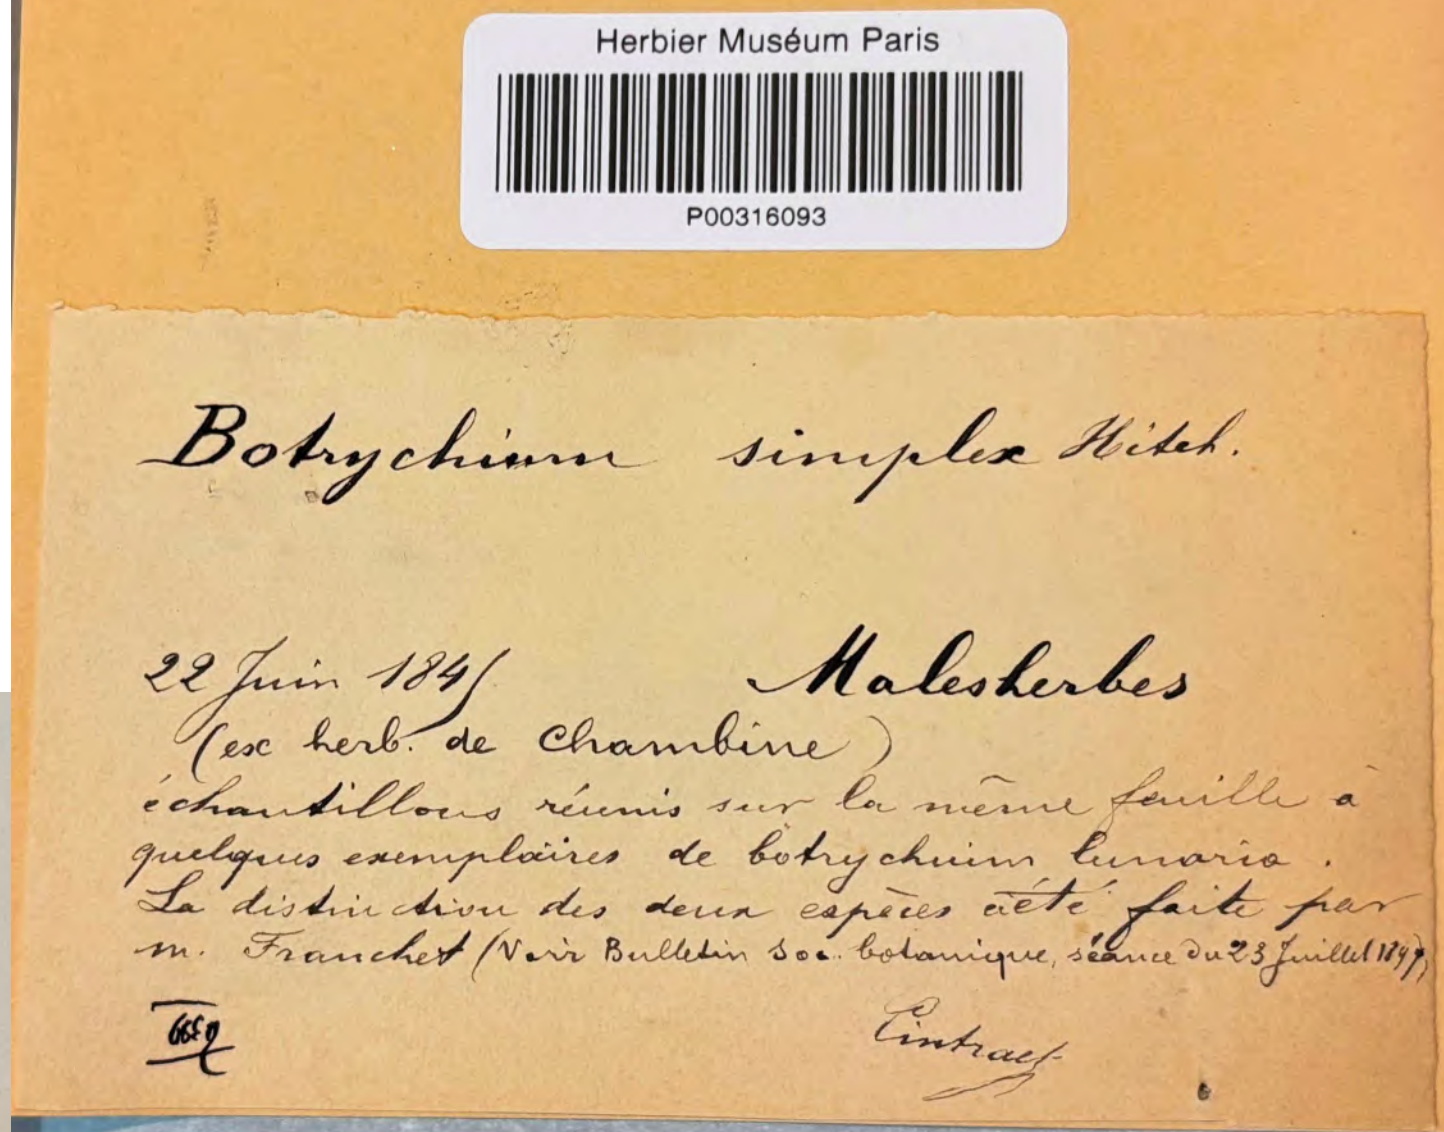 Herbier Muséum Paris
P00316093
Botrychium simplex Hitch.
22 Juin 1845 Malesherbes
(ex herb. de Chambine)
échantillons réunis sur la même feuille à
quelques exemplaires de botrychium lunaria.
La distinction des deux espèces a été faite par
m. Franchet (Voir Bulletin Soc. botanique, séance du 23 Juillet 1897)